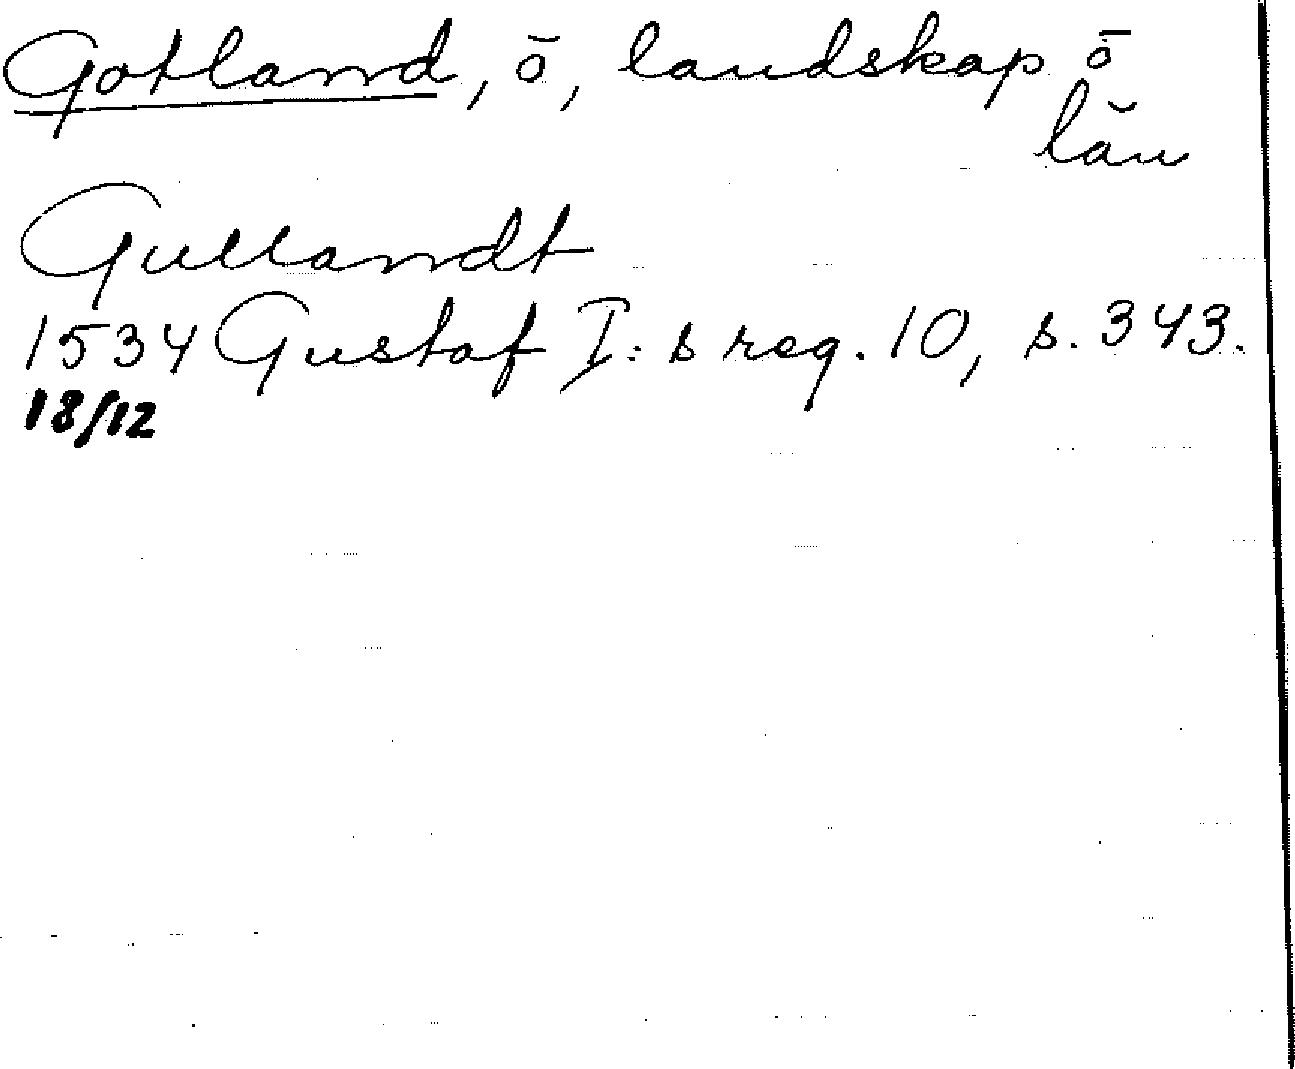 Gotland, ö, landskap o
län
Gullandt
1534 Gustaf I:s reg. 10, s. 343.
18/12